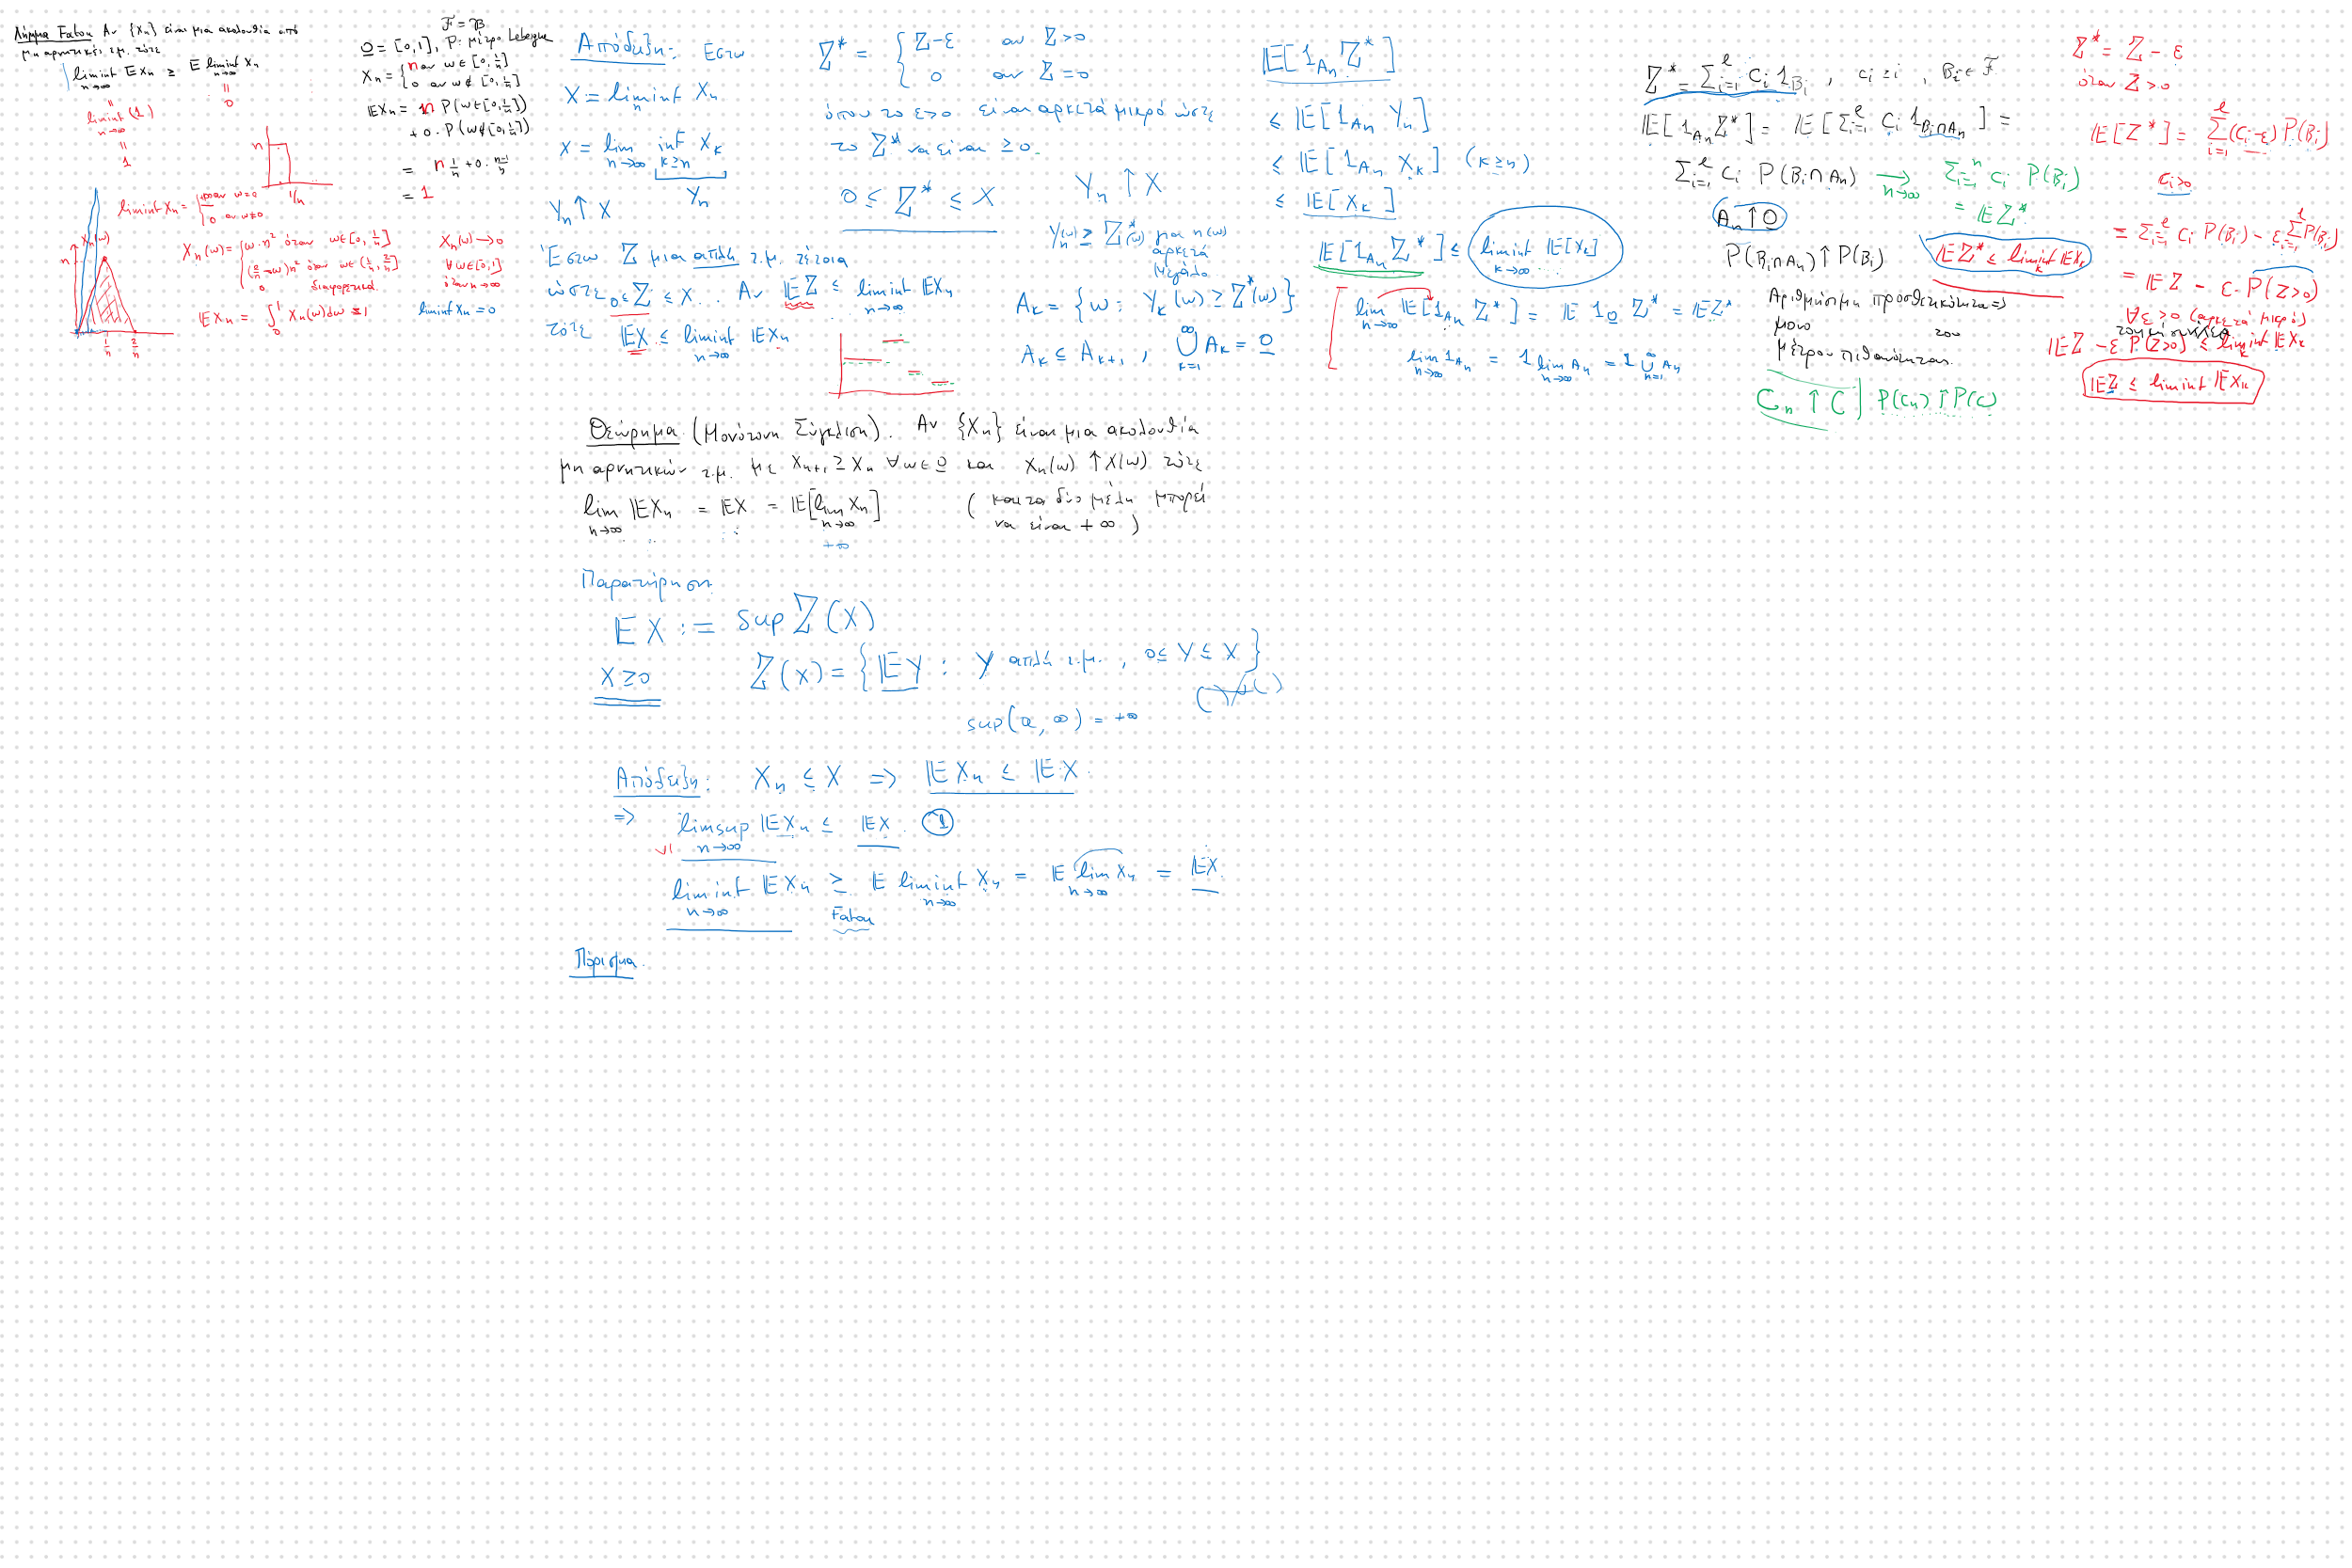 Λήμμα Fatou Αν {Xn} είναι μια ακολουθία από
μη αρνητικές τ.μ. τότε
liminf EXn ≥ E liminf Xn
n→∞ n→∞
liminf (1)
n→∞
1
0
F = B
Ω = [0,1], P: μέτρο Lebesgue
Xn = { n αν ω∈[0,1/n]
0 αν ω∉[0,1/n]
EXn = n P(ω∈[0,1/n])
+ 0·P(ω∉[0,1/n])
= n 1/n + 0· (n-1)/n
= 1
n
1/n
liminf Xn = { +∞ αν ω=0
0 αν ω≠0
Xn(ω)
n
1/n 2/n
Xn(ω) = { ω·n² όταν ω∈[0,1/n]
(2/n - ω)n² όταν ω∈(1/n, 2/n]
0 διαφορετικά
Xn(ω)→0
∀ω∈[0,1]
όταν n→∞
EXn = ∫₀¹ Xn(ω)dω = 1
liminf Xn = 0
Απόδειξη: Εστω
X = liminf Xn
n
X = lim inf Xk
n→∞ k≥n
Yn
Yn ↑ X
Έστω Z μια απλή τ.μ. τέτοια
ώστε 0≤Z ≤ X. Αν EZ ≤ liminf EXn
n→∞
τότε EX ≤ liminf EXn
n→∞
Z* = { Z-ε αν Z>0
0 αν Z=0
όπου το ε>0 είναι αρκετά μικρό ώστε
το Z* να είναι ≥0.
0 ≤ Z* ≤ X
Yn ↑ X
Yn(ω) ≥ Z*(ω) για n(ω)
αρκετά
μεγάλο
Ak = {ω: Yk(ω) ≥ Z*(ω)}
Ak ⊆ Ak+1, ∪ Ak = Ω
k=1 ∞
E[1An Z*]
≤ E[1An Yn]
≤ E[1An Xk] (k≥n)
≤ E[Xk]
E[1An Z*] ≤ liminf E[Xk]
k→∞
lim E[1An Z*] = E 1Ω Z* = EZ*
n→∞
lim 1An = 1 lim An = 1 ∪ An
n→∞ n→∞ n=1 ∞
Z* = Σ ci 1Bi, ci ≥ , Bi∈F
E[1An Z*] = E[Σ ci 1Bi∩An] =
Σ ci P(Bi∩An) → Σ ci P(Bi)
n→∞
= EZ*
An ↑ Ω
P(Bi∩An) ↑ P(Bi)
EZ* ≤ liminf EXk
k
Αριθμήσιμη προσθετικότητα ⇒
μονο του
μέτρου πιθανότητας.
Cn ↑ C | P(Cn) ↑ P(C)
Z* = Z - ε
όταν Z>0
E[Z*] = Σ (ci-ε) P(Bi)
ci>0
= Σ ci P(Bi) - ε Σ P(Bi)
= EZ - ε·P(Z>0)
∀ε>0 (αρκετά μικρό)
EZ - ε P(Z>0) ≤ liminf EXk
k
EZ ≤ liminf EXk
Θεώρημα (Μονότονη Σύγκλιση). Αν {Xn} είναι μια ακολουθία
μη αρνητικών τ.μ. με Xn+1 ≥ Xn ∀ω∈Ω και Xn(ω) ↑ X(ω) τότε
lim EXn = EX = E[lim Xn] (και τα δύο μέλη μπορεί
n→∞ n→∞ να είναι +∞)
+∞
Παρατήρηση
EX := sup Z(X)
X≥0 Z(X) = {EY : Y απλή τ.μ., 0≤Y≤X}
sup(a,∞) = +∞
Απόδειξη: Xn ≤ X ⇒ EXn ≤ EX
⇒ limsup EXn ≤ EX. ①
n→∞
liminf EXn ≥ E liminf Xn = E lim Xn = EX.
n→∞ Fatou n→∞ n→∞
Πόρισμα.